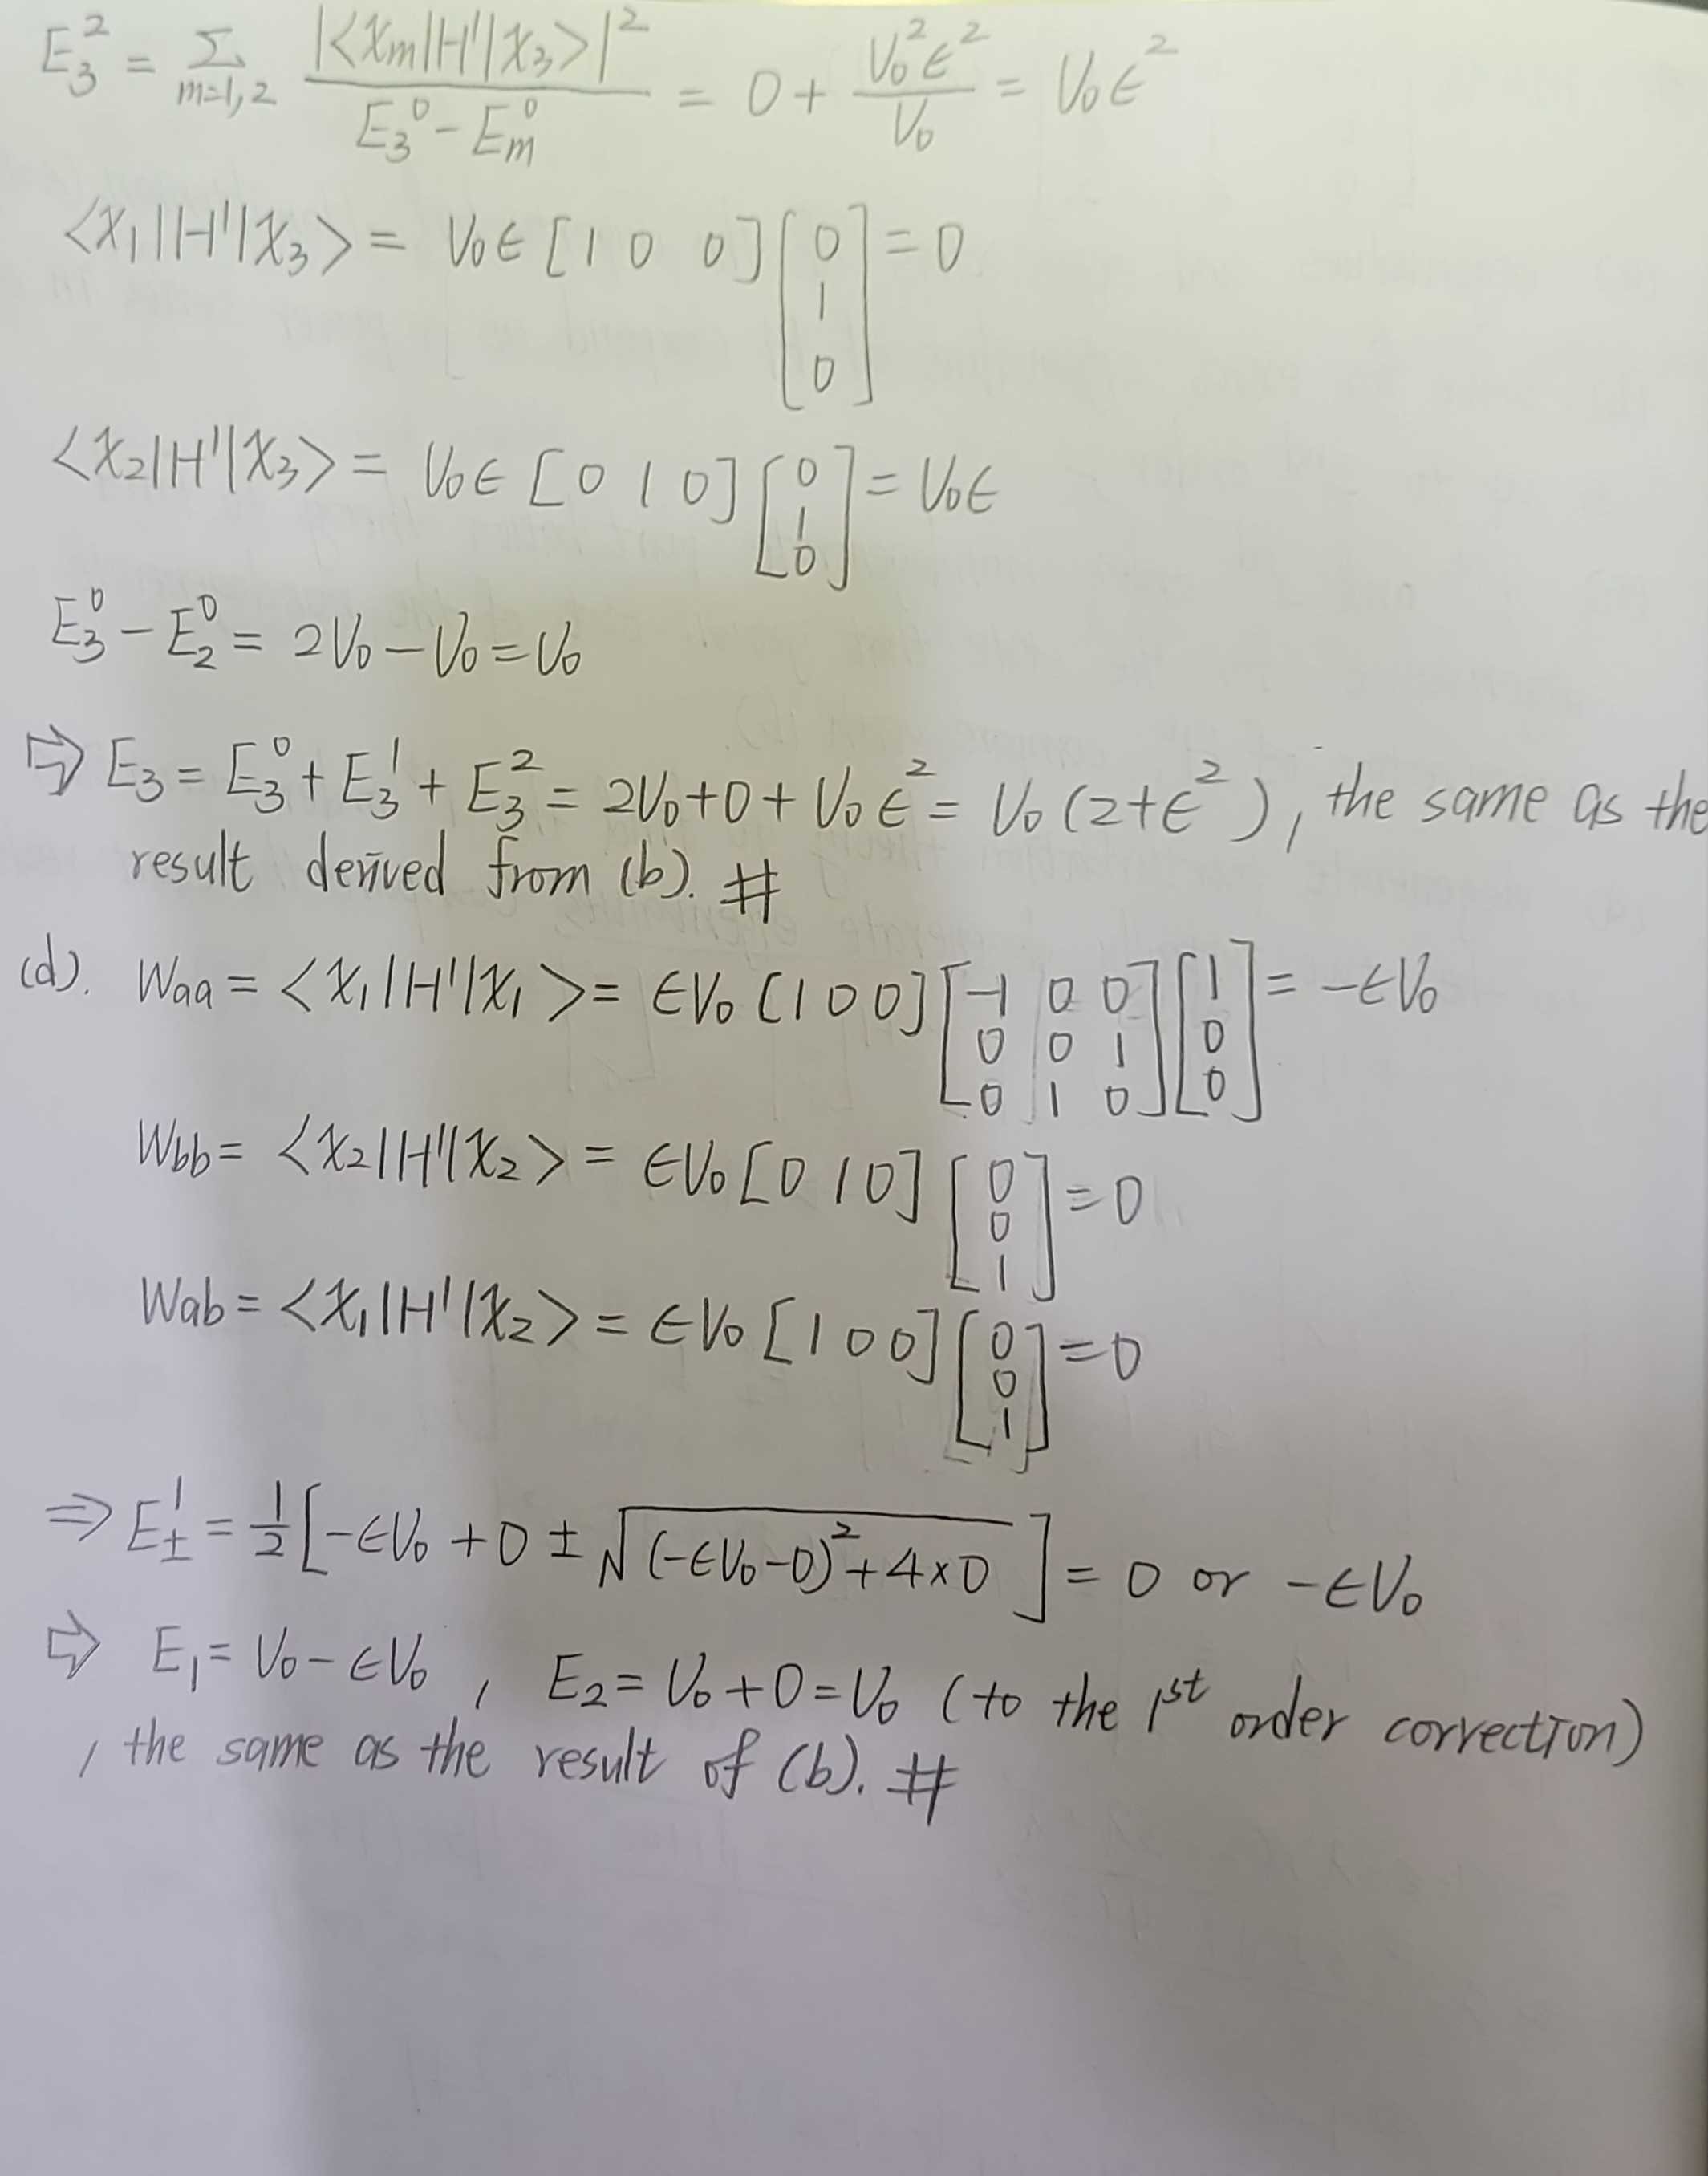 E₃² = Σ_{m=1,2} |<χm|H'|χ₃>|² / (E₃⁰ - Em⁰) = 0 + V₀²ϵ² / V₀ = V₀ϵ²
<χ₁|H'|χ₃> = V₀ϵ [1 0 0] [0 1 0] = 0
<χ₂|H'|χ₃> = V₀ϵ [0 1 0] [0 1 0] = V₀ϵ
E₃⁰ - E₂⁰ = 2V₀ - V₀ = V₀
⇨ E₃ = E₃⁰ + E₃¹ + E₃² = 2V₀ + 0 + V₀ϵ² = V₀ (2+ϵ²), the same as the
result derived from (b). #
(d). Waa = <χ₁|H'|χ₁> = ϵV₀ [1 0 0] [-1 0 0; 0 0 1; 0 1 0] [1 0 0] = -ϵV₀
Wbb = <χ₂|H'|χ₂> = ϵV₀ [0 1 0] [0 0 1] = 0
Wab = <χ₁|H'|χ₂> = ϵV₀ [1 0 0] [0 0 1] = 0
⇒ E±¹ = 1/2 [-ϵV₀ + 0 ± √((-ϵV₀-0)² + 4×0)] = 0 or -ϵV₀
⇨ E₁ = V₀ - ϵV₀ , E₂ = V₀ + 0 = V₀ (to the 1st order correction)
, the same as the result of (b). #